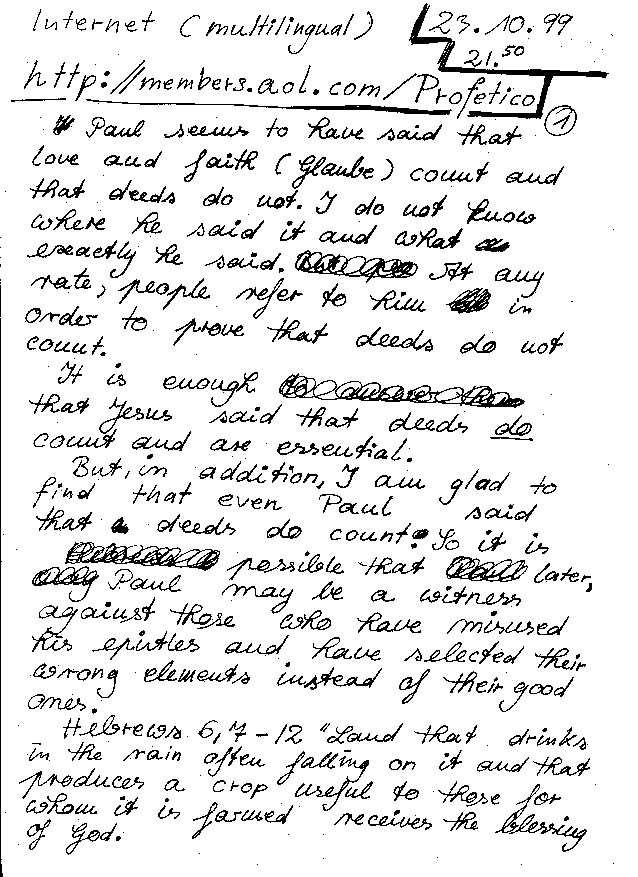 Internet (multilingual)
23.10.99
21.50
http://members.aol.com/Profetico
1
Paul seems to have said that
love and faith (Glaube) count and
that deeds do not. I do not know
where he said it and what
exactly he said. At any
rate, people refer to him in
order to prove that deeds do not
count.
It is enough
that Jesus said that deeds do
count and are essential.
But, in addition, I am glad to
find that even Paul said
that deeds do count. So it is
possible that later,
Paul may be a witness
against those who have misused
his epistles and have selected their
wrong elements instead of their good
ones.
Hebrews 6,7-12 "Land that drinks
in the rain often falling on it and that
produces a crop useful to those for
whom it is farmed receives the blessing
of God.